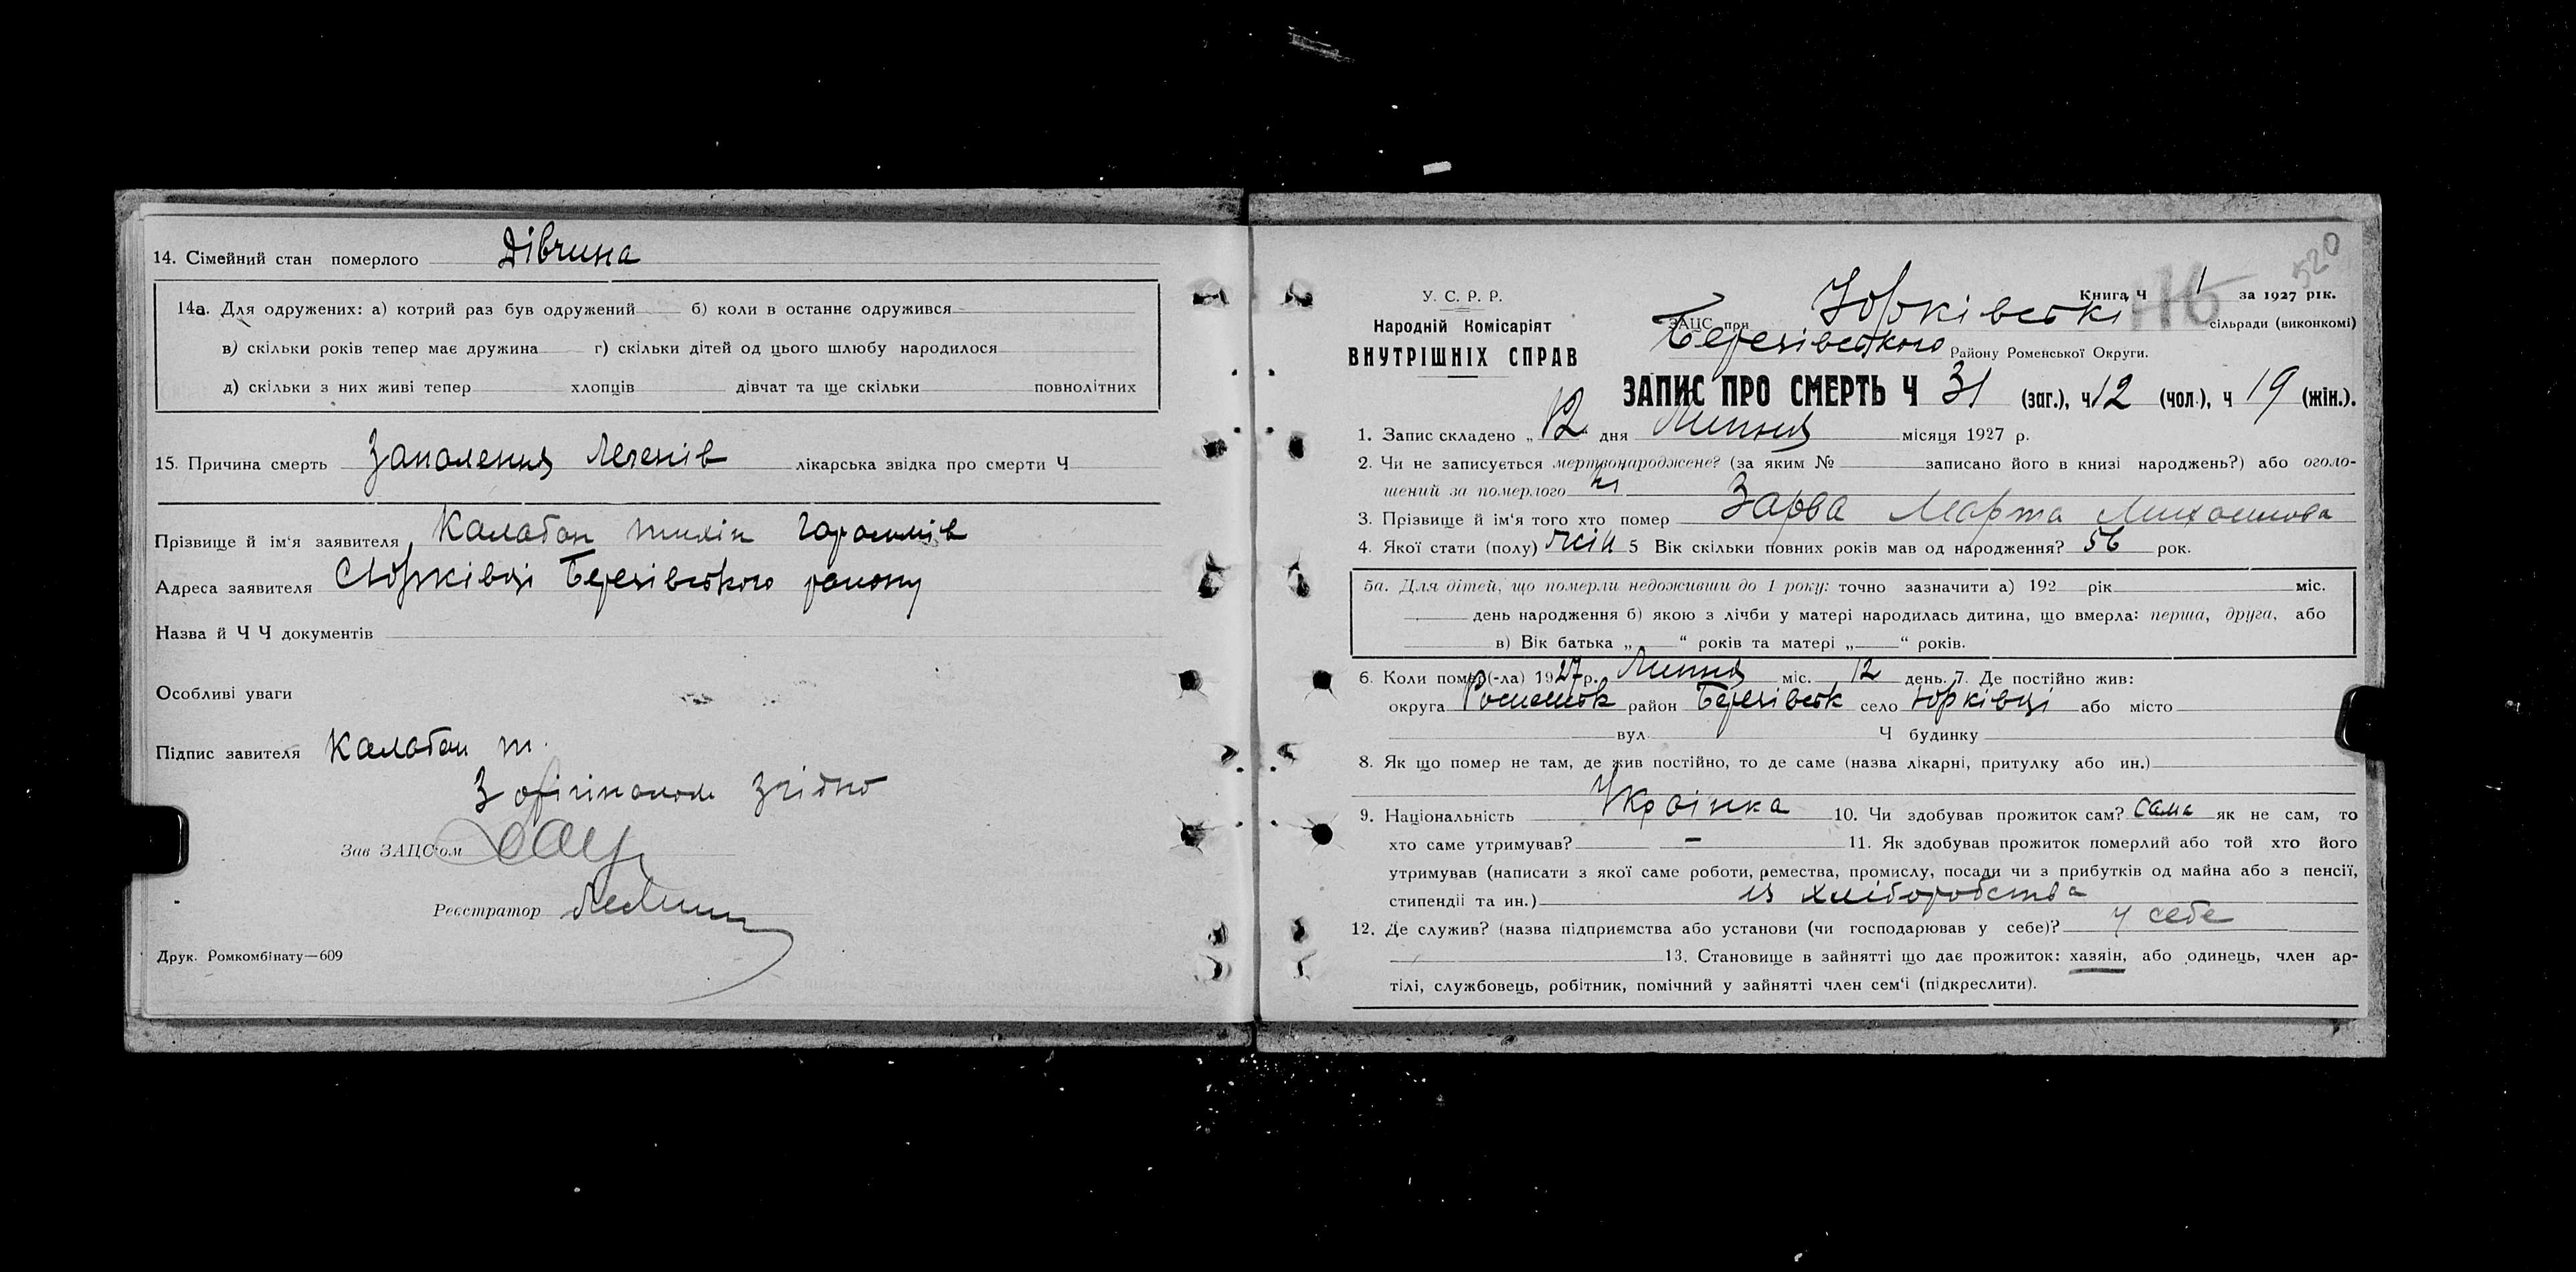 14. Сімейний стан померлого Дівчина
14а. Для одружених: а) котрий раз був одружений б) коли в останнє одружився
в) скільки років тепер має дружина г) скільки дітей од цього шлюбу народилося
д) скільки з них живі тепер хлопців дівчат та ще скільки повнолітних
15. Причина смерть Запалення Легенів лікарська звідка про смерти Ч
Прізвище й ім'я заявителя Калабан
Адреса заявителя с Юрківці Березівського району
Назва й Ч Ч документів
Особливі уваги
Підпис завителя Калабан т.
З орігіналом згідно
Зав ЗАЦС'ом
Реєстратор
Друк. Ромкомбінату—609
520
Книга Ч 1 за 1927 рік.
У. С. Р. Р.
Народній Комісаріят
ВНУТРІШНІХ СПРАВ
ЗАЦС при Юрківські сільради (виконкомі)
Березівського Району Роменської Округи.
ЗАПИС ПРО СМЕРТЬ Ч 31 (заг.), ч 12 (чол.), ч 19 (жін.).
1. Запис складено „ 12 дня Липня місяця 1927 р.
2. Чи не записується мертвонароджене? (за яким № записано його в книзі народжень?) або оголо-
шений за померлого ні
3. Прізвище й ім'я того хто помер Зарва Марта Михаилова
4. Якої стати (полу) жін 5 Вік скільки повних років мав од народження? 56 рок.
5а. Для дітей, що померли недоживши до 1 року: точно зазначити а) 192 рік міс.
день народження б) якою з лічби у матері народилась дитина, що вмерла: перша, друга, або
в) Вік батька „ “ років та матері „ “ років.
6. Коли помер(-ла) 1927 р. Липня міс. 12 день. 7. Де постійно жив:
округа Роменськ район Березівськ село Юрківці або місто
вул. Ч будинку
8. Як що помер не там, де жив постійно, то де саме (назва лікарні, притулку або ин.)
9. Національність Українка 10. Чи здобував прожиток сам? сама як не сам, то
хто саме утримував? – 11. Як здобував прожиток померлий або той хто його
утримував (написати з якої саме роботи, ремества, промислу, посади чи з прибутків од майна або з пенсії,
стипендії та ин.) из хліборобства
12. Де служив? (назва підприємства або установи (чи господарював у себе)? у себе
13. Становище в зайнятті що дає прожиток: хазяін, або одинець, член ар-
тілі, службовець, робітник, помічний у зайнятті член сем'і (підкреслити).